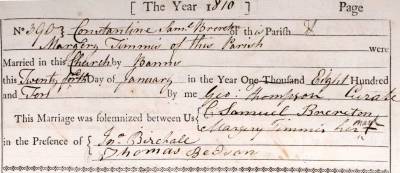 [The Year 1810] Page
No. 390 } Constantine Saml Brereton of this Parish &
Margery Timmis of this Parish
were
Married in this Church by Banns
this Twenty Day of January in the Year One Thousand Eight Hundred
and Ten By me Geo. Thompson Curate
This Marriage was solemnized between Us { C. Samuel Brereton
Margery Timmis her mark
in the Presence of { Jno. Birchall
Thomas Bevan